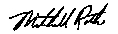 Mitchell Roth